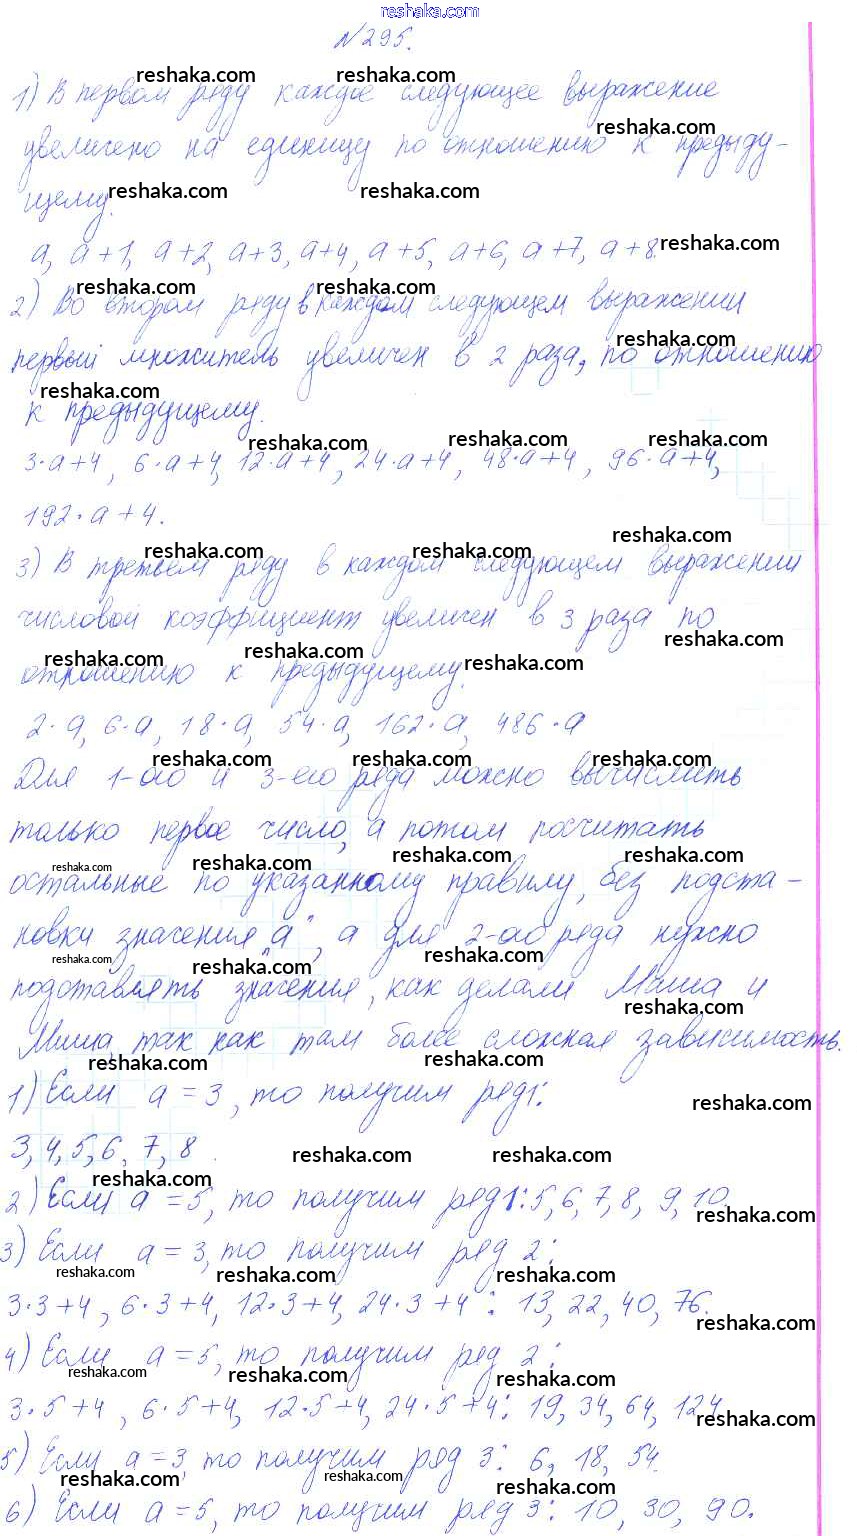 reshaka.com
№295.
1) В первом ряду каждое следующее выражение
увеличено на единицу по отношению к предыду-
щему.
a, a+1, a+2, a+3, a+4, a+5, a+6, a+7, a+8.
2) Во втором ряду в каждом следующем выражении
первый множитель увеличен в 2 раза, по отношению
к предыдущему.
3·a+4, 6·a+4, 12·a+4, 24·a+4, 48·a+4, 96·a+4,
192·a+4.
3) В третьем ряду в каждом следующем выражении
числовой коэффициент увеличен в 3 раза по
отношению к предыдущему.
2·a, 6·a, 18·a, 54·a, 162·a, 486·a
Для 1-ого и 3-его ряда можно вычислить
только первое число, а потом посчитать
остальные по указанному правилу, без подста-
новки значения „a", а для 2-ого ряда нужно
подставлять значения, как делали Маша и
Миша, так как там более сложная зависимость.
1) Если a=3, то получим ряд1:
3, 4, 5, 6, 7, 8.
2) Если a=5, то получим ряд1: 5, 6, 7, 8, 9, 10.
3) Если a=3, то получим ряд 2:
3·3+4, 6·3+4, 12·3+4, 24·3+4: 13, 22, 40, 76.
4) Если a=5, то получим ряд 2:
3·5+4, 6·5+4, 12·5+4, 24·5+4: 19, 34, 64, 124
5) Если a=3, то получим ряд 3: 6, 18, 54.
6) Если a=5, то получим ряд 3: 10, 30, 90.